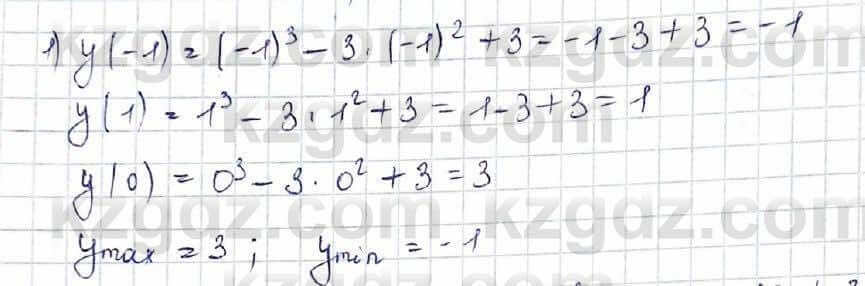 1) y(-1) = (-1)³ - 3 · (-1)² + 3 = -1 - 3 + 3 = -1
y(1) = 1³ - 3 · 1² + 3 = 1 - 3 + 3 = 1
y(0) = 0³ - 3 · 0² + 3 = 3
ymax = 3 ; ymin = -1
kzgdz.com
kzgdz.com
kzgdz.com